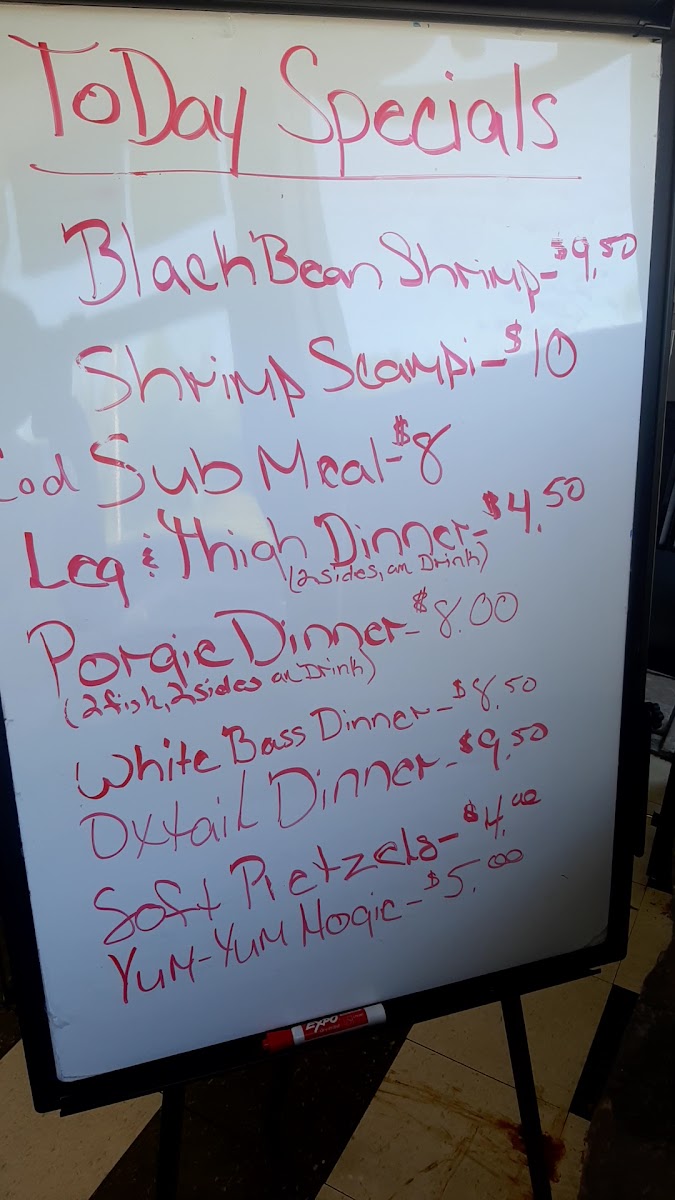 ToDay Specials
Black Bean Shrimp - $9.50
Shrimp Scampi - $10
Cod Sub Meal - $8
Leg & Thigh Dinner - $4.50
(2 sides, an Drink)
Porgie Dinner - $8.00
(2 fish, 2 sides an Drink)
White Bass Dinner - $8.50
Oxtail Dinner - $9.50
Soft Pretzels - $4.00
Yum-Yum Hogie - $5.00
EXPO